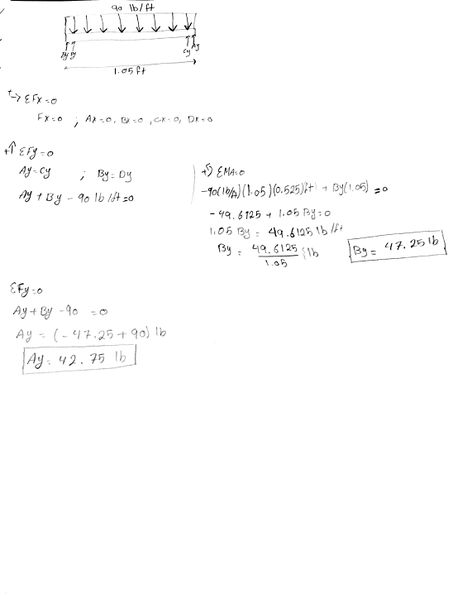 90 lb/ft
Ay By Cy Dy
1.05 ft
ΣFx=0
Fx=0 ; Ax=0, Bx=0, Cx=0, Dx=0
+↑ ΣFy=0
Ay=Cy ; By=Dy
Ay + By - 90 lb/ft=0
ΣMA=0
-90(lb/ft)(1.05)(0.525)ft + By(1.05) =0
-49.6125 + 1.05 By=0
1.05 By = 49.6125 lb/ft
By = 49.6125 lb
1.05
By= 47.25 lb
ΣFy=0
Ay+By -90 =0
Ay = (-47.25+90) lb
Ay= 42.75 lb